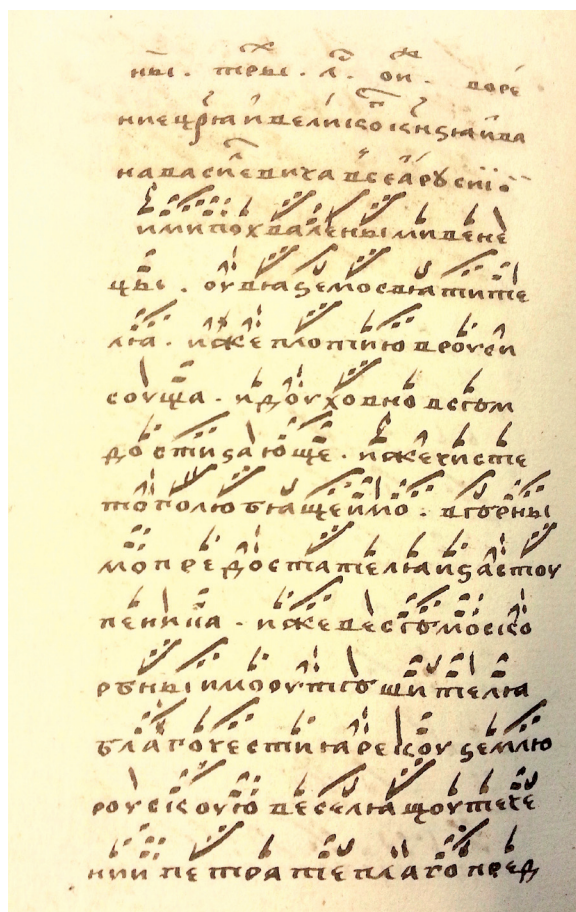 ны . тры . л҃ . ои . творе
ниецрѧ ивеликого кнѕѧ ива
навасилевича всеѧ русиі :
ими похвалены ми вене
цы . оувѧземо свѧтите
лѧ . иже плотию вроуси
соуща . и доуховно всѣм
достизающе . иже чисте
то полюбѧщеимо . вѣрны
мо предостателѧ изастоу
пеника . иже весѣмо ско
рбны имо оутѣшителѧ
благочестиꙗ рекоу землю
роускоую веселѧщоу тече
нии петра теплаго пред